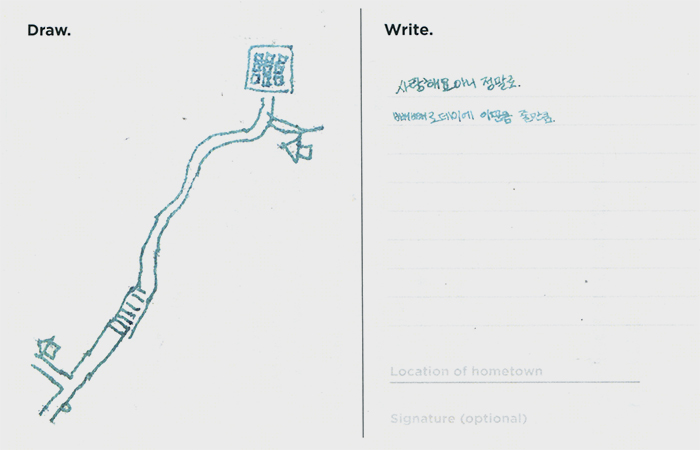 Draw.
Write.
사랑해요아니 정말로.
빼빼로데이에 줄만큼.
Location of hometown
Signature (optional)